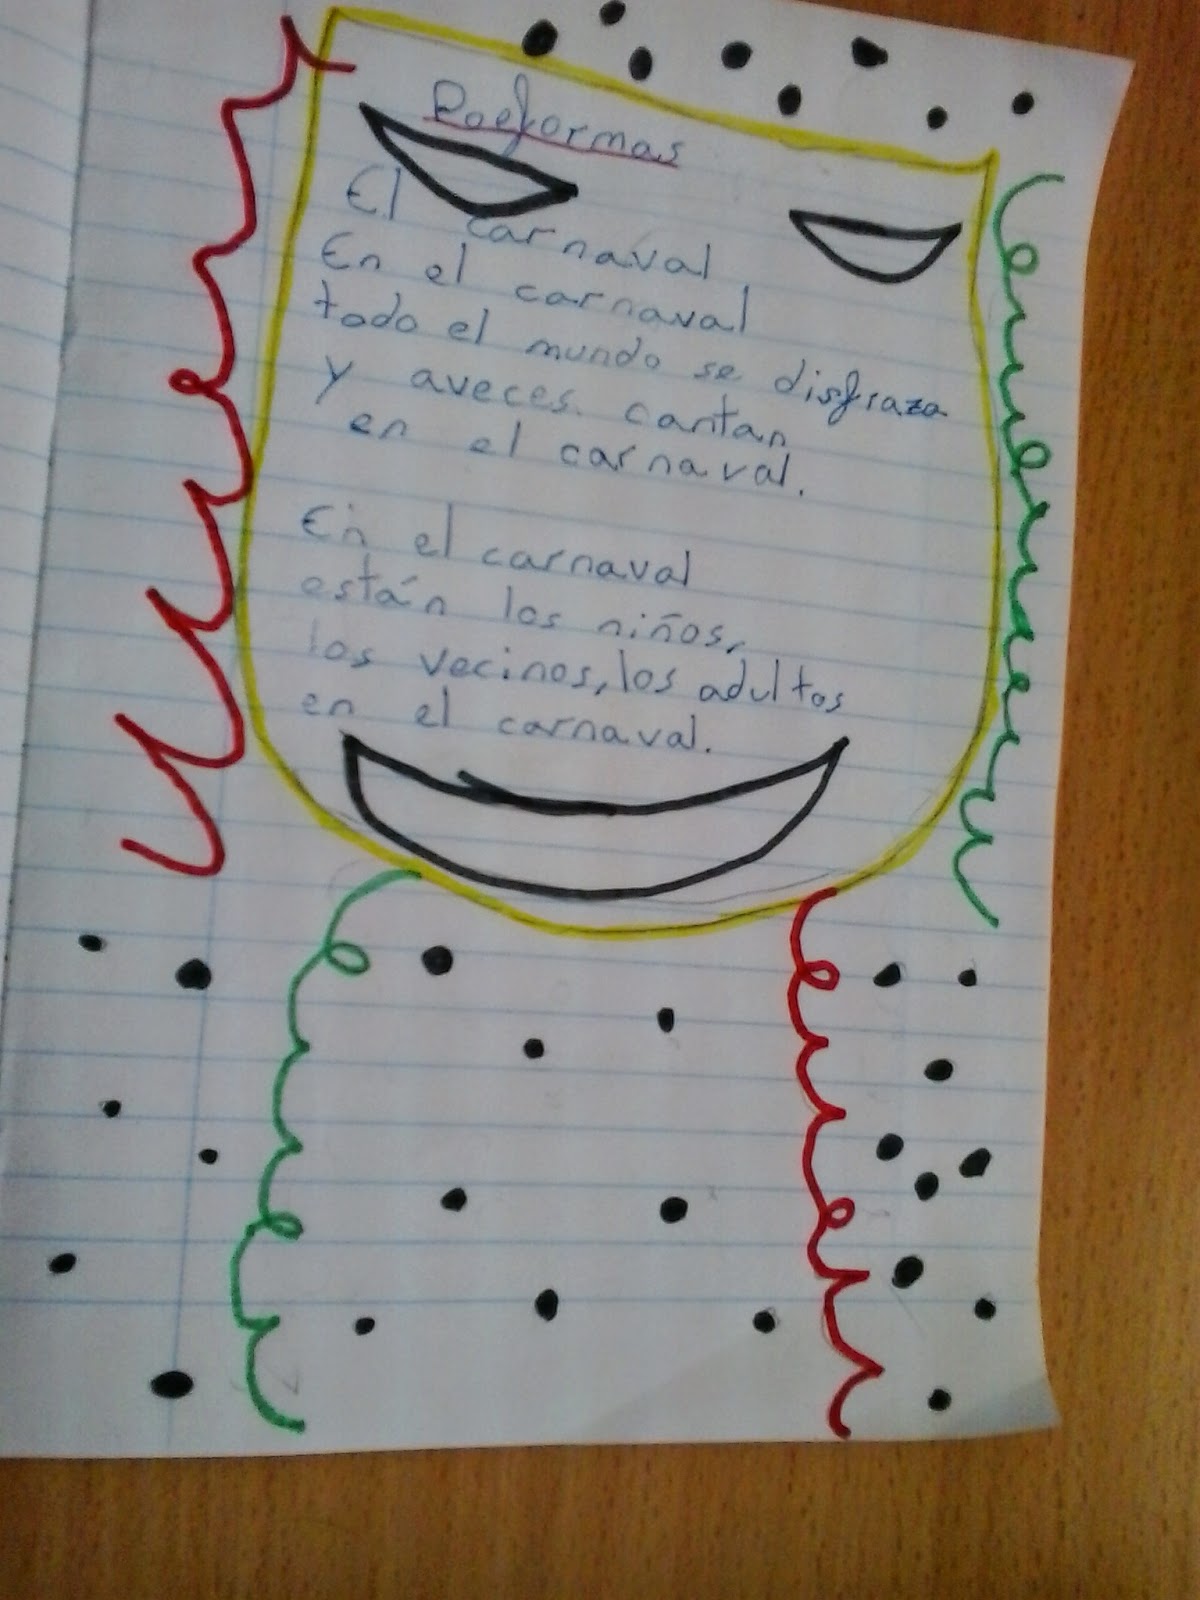 Poeformas
El carnaval
En el carnaval
todo el mundo se disfraza
y aveces cantan
en el carnaval.
En el carnaval
están los niños,
los vecinos, los adultos
en el carnaval.